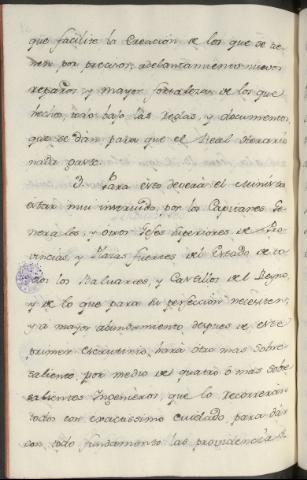 que facilite la Creación de los que se de
nen por precisos, adelantamiento nuevos
reparos y mayor fortaleza de los que
hechos, todo bajo las reglas, y documentos,
que se dàn para que el Real Herario
nada gaste.
3. Para esto deverá el Ministro
estar mui instruido, por los Capitanes Ge
nerales, y otros Jefes Superiores de Pro
vincias, y Plazas fuertes del Estado de to
dos los Baluartes, y Castillos del Reyno,
y de lo que para su perfección necesiten;
y a mayor abundamiento, despues de este
primer escrutinio, hará otro mas sobre
saliente por medio de quatro ó mas sobre
salientes Ingenieros, que lo recorreràn
todo con exactissimo cuidado, para dàr
con todo fundamento las providencias